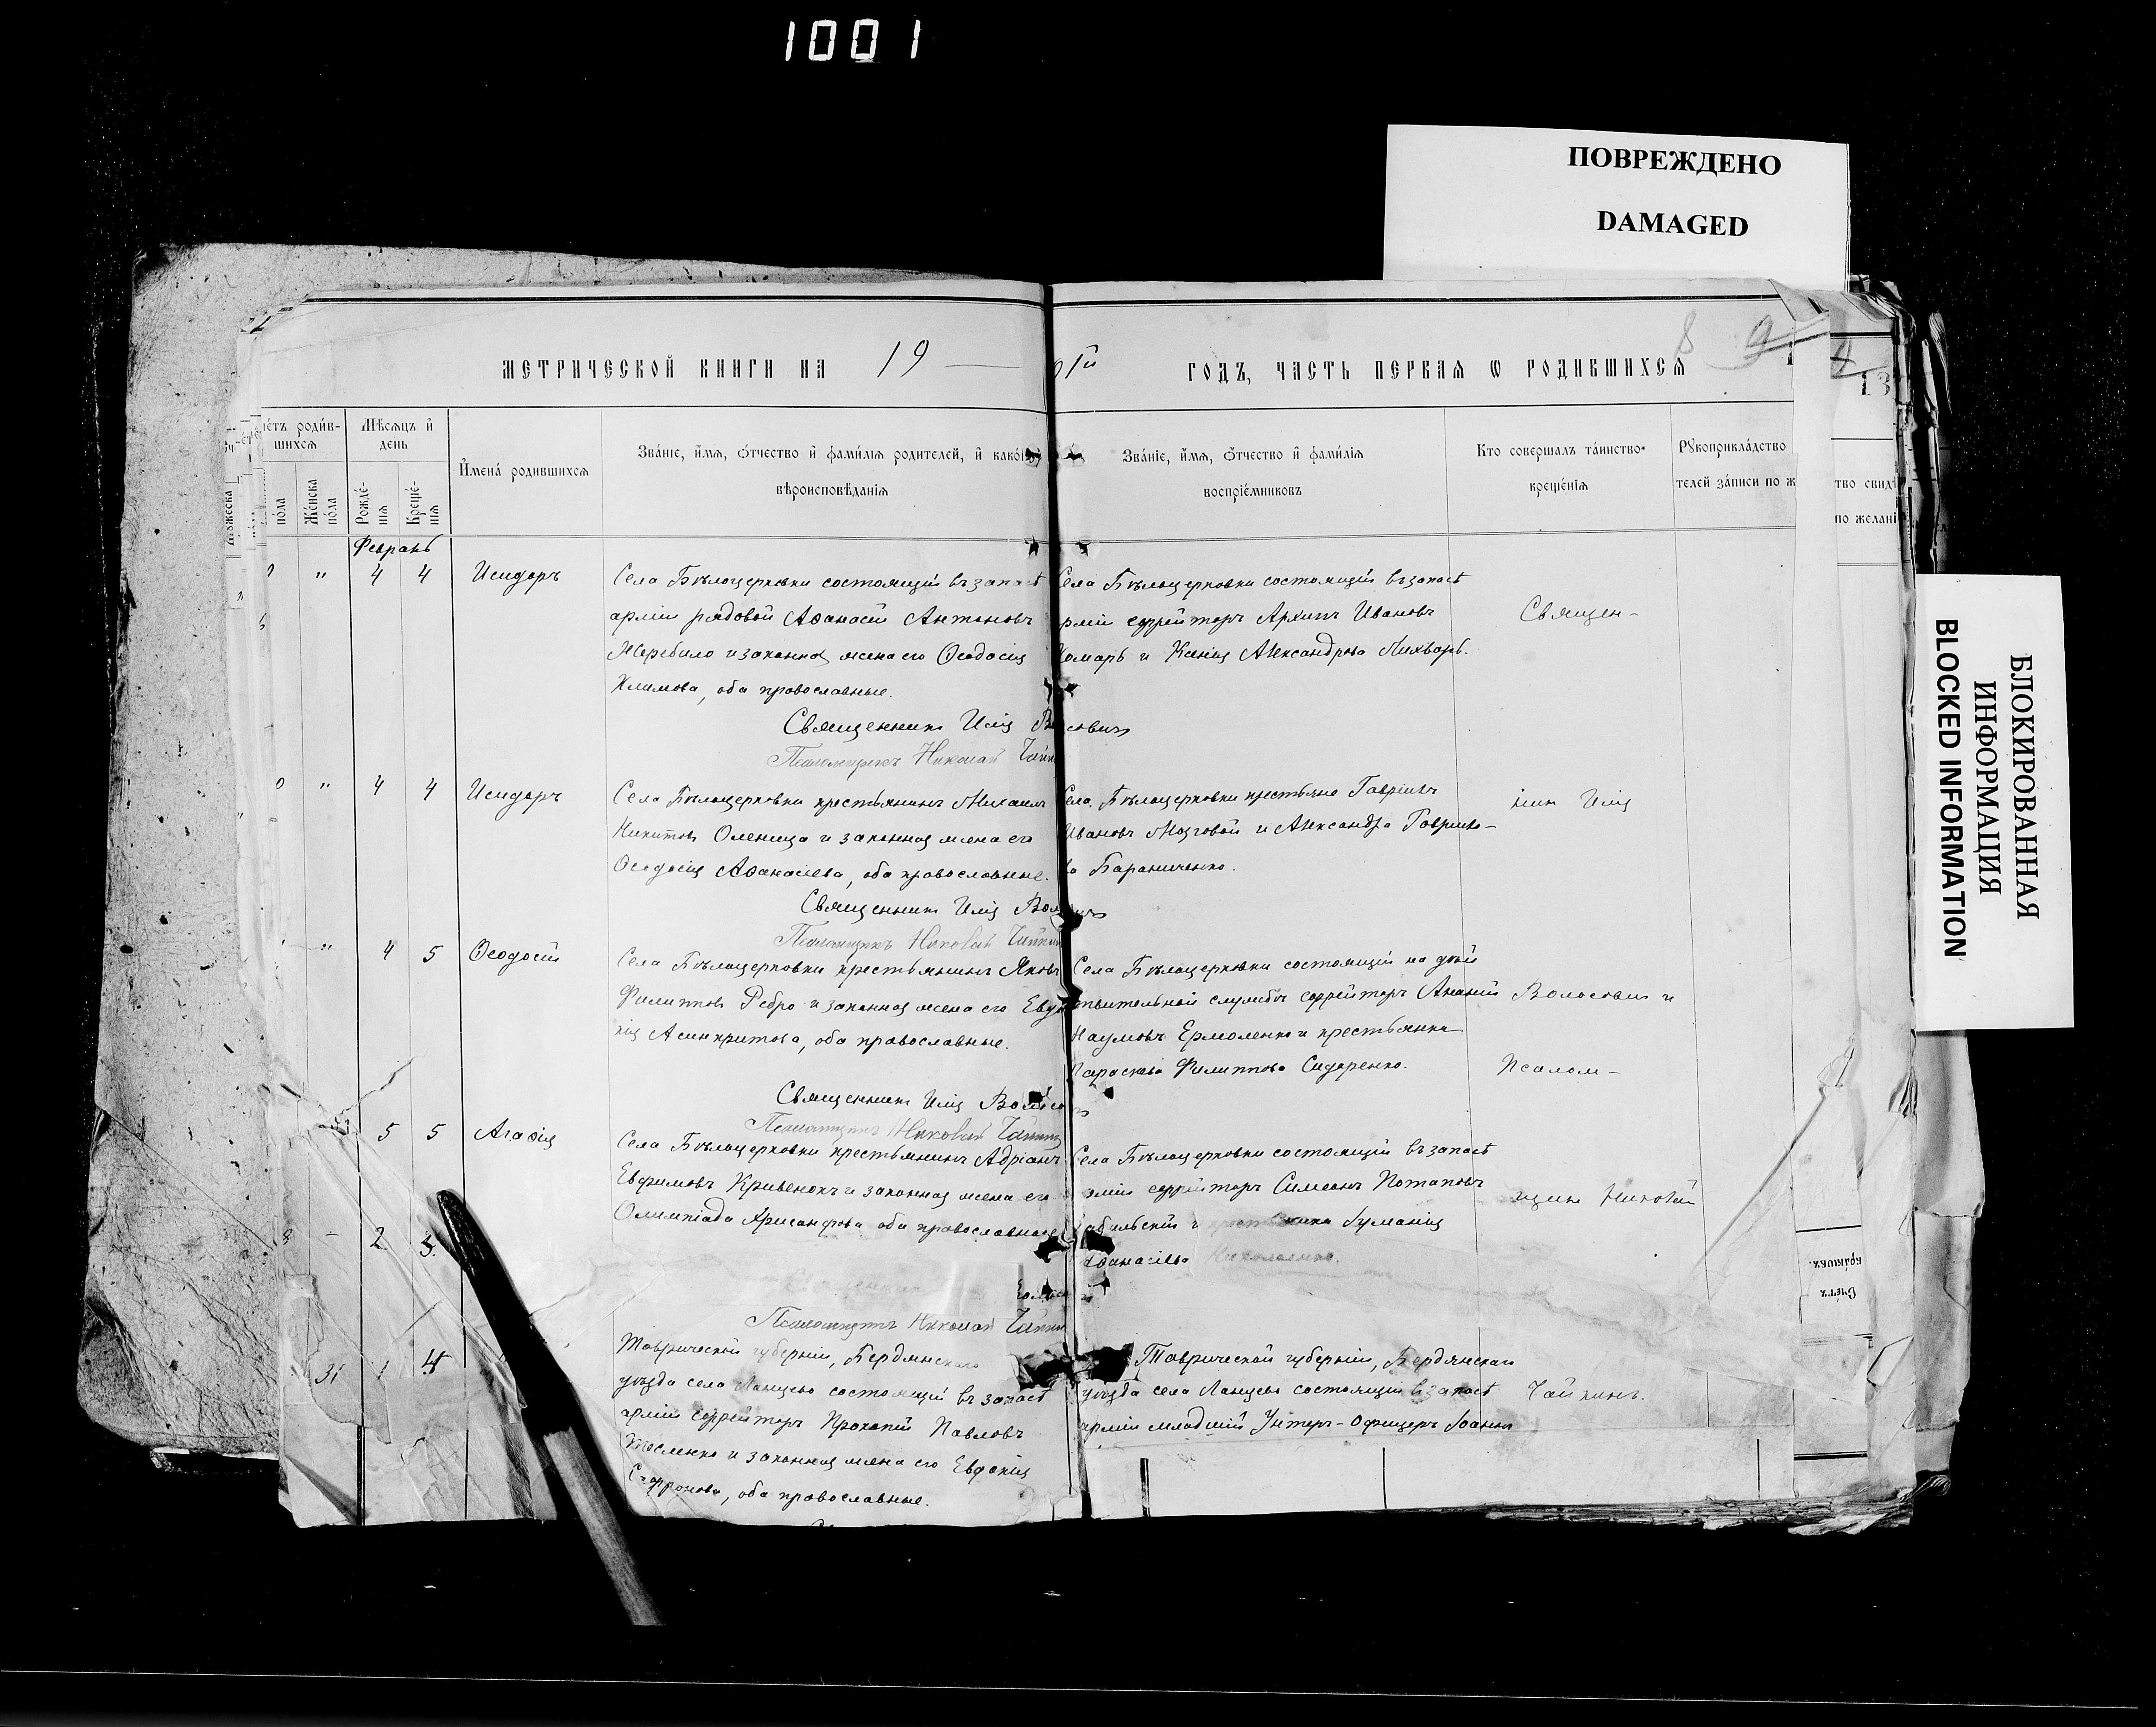 1001
ПОВРЕЖДЕНО
DAMAGED
БЛОКИРОВАННАЯ
ИНФОРМАЦИЯ
BLOCKED INFORMATION
МЕТРИЧЕСКОЙ КНИГИ НА 19
ГОДЪ, ЧАСТЬ ПЕРВАЯ Ѡ РОДИВШИХСЯ
8 9
13
родив-
шихся
Мѣсяцъ и
день
пола
Женска
пола
Рожде-
нія
Креще-
нія
Имена родившихся
Званіе, имя, отчество и фамилія родителей, и
вѣроисповѣданія
Званіе, имя, отчество и фамилія
воспріемниковъ
Кто совершалъ таинство
крещенія
Рукоприкладство
телей записи по ж
тво свид
по желані
Февраль
" 4 4 Исидоръ
Села Бѣлоцерковки состоящій въ запасѣ
арміи рядовой Аѳанасій Антоновъ
Жеребило и законная жена его Ѳеодосія
Климова, оба православные.
Священникъ Илія
Псаломщикъ Николай
Села Бѣлоцерковки состоящій въ запасѣ
рміи ефрейторъ Архипъ Ивановъ
омарь и Ксенія Александрова Лихварь.
Священ-
" 4 4 Исидоръ
Села Бѣлоцерковки крестьянинъ Михаилъ
Никитовъ Оленица и законная жена его
Ѳеодосія Аѳанасіева, оба православные.
Священникъ Илія
Псаломщикъ Николай
Села Бѣлоцерковки крестьяне Гавріилъ
Ивановъ Мозговой и Александра Гавріило-
ва Бараниченко.
никъ Илія
" 4 5 Ѳеодосій
Села Бѣлоцерковки крестьянинъ Яковъ
Филипповъ Ребро и законная жена его Евдо
кія Асинкритова, оба православные.
Священникъ Илія
Псаломщикъ Николай
Села Бѣлоцерковки состоящій на дѣй
ствительной службѣ ефрейторъ Ананій
Наумовъ Ермоленко и крестьянка
Параскева Филиппова Сидоренко.
Волосовичъ и
Псалом-
5 5 Агаѳія
Села Бѣлоцерковки крестьянинъ Адріанъ
Евфимовъ Кривенокъ и законная жена его
Олимпіада Хрисанфова оба православные
Псаломщикъ Николай
Села Бѣлоцерковки состоящій въ запасѣ
рміи ефрейторъ Симеонъ Потаповъ
и крестьянка Іуманія
Аѳанасіева Николаенко.
щикъ Николай
2 3.
31 1 4
Таврической губерніи, Бердянскаго
уѣзда села состоящій въ запасѣ
арміи ефрейторъ Прокопій Павловъ
Тесленко и законная жена его Евдокія
Софронова, оба православные.
Таврической губерніи, Бердянскаго
уѣзда села состоящій въ запасѣ
арміи младшій Унтеръ-Офицеръ Іоаннъ
Чайкинъ.
Счетъ